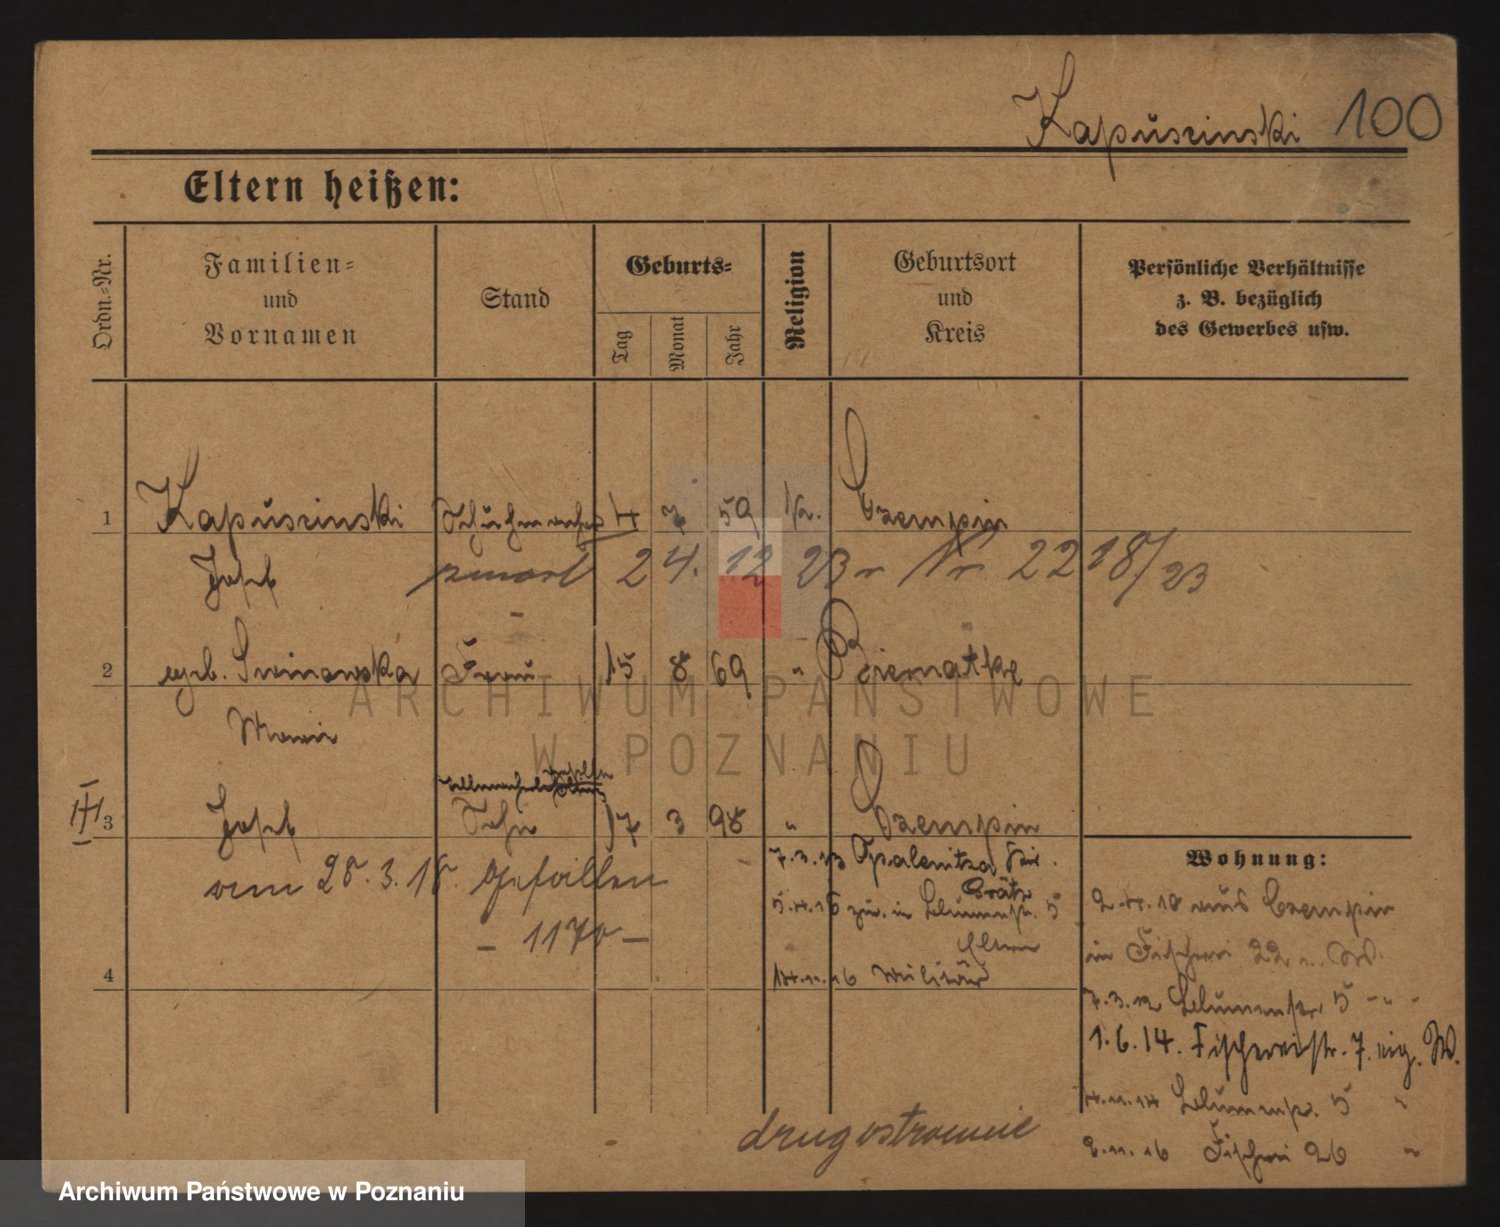 Kapuszinski 100
Eltern heißen:
Ordn.-Nr.
Familien-
und
Vornamen
Stand
Geburts-
Tag
Monat
Jahr
Religion
Geburtsort
und
Kreis
Persönliche Verhältnisse
z. B. bezüglich
des Gewerbes usw.
1 Kapuszinski Schuhmacher 4 7 59 k. Czempin
Josef zmarł 24. 12 23 r Nr. 2218/23
2 geb. Swinarska Frau 15 8 69 " Biernatke
Maria
III 3 Josef Sohn 17 3 98 " Czempin
vom 28.3.18. gefallen
- 1170 -
7.3.13 Opalenitza Kr.
Grätz
5.4.16 zur. in Blumenstr. 5
Eltern
14.11.16 Militär
4
Wohnung:
2.4.10 aus Czempin
in Fischerei 22 W.
7.3.12 Blumenstr. 5 - " -
1.6.14. Fischereistr. 7. eig. W.
4.11.14 Blumenstr. 5 "
2.11.16 Fischerei 26 "
drugostronnie
ARCHIWUM PAŃSTWOWE
W POZNANIU
Archiwum Państwowe w Poznaniu